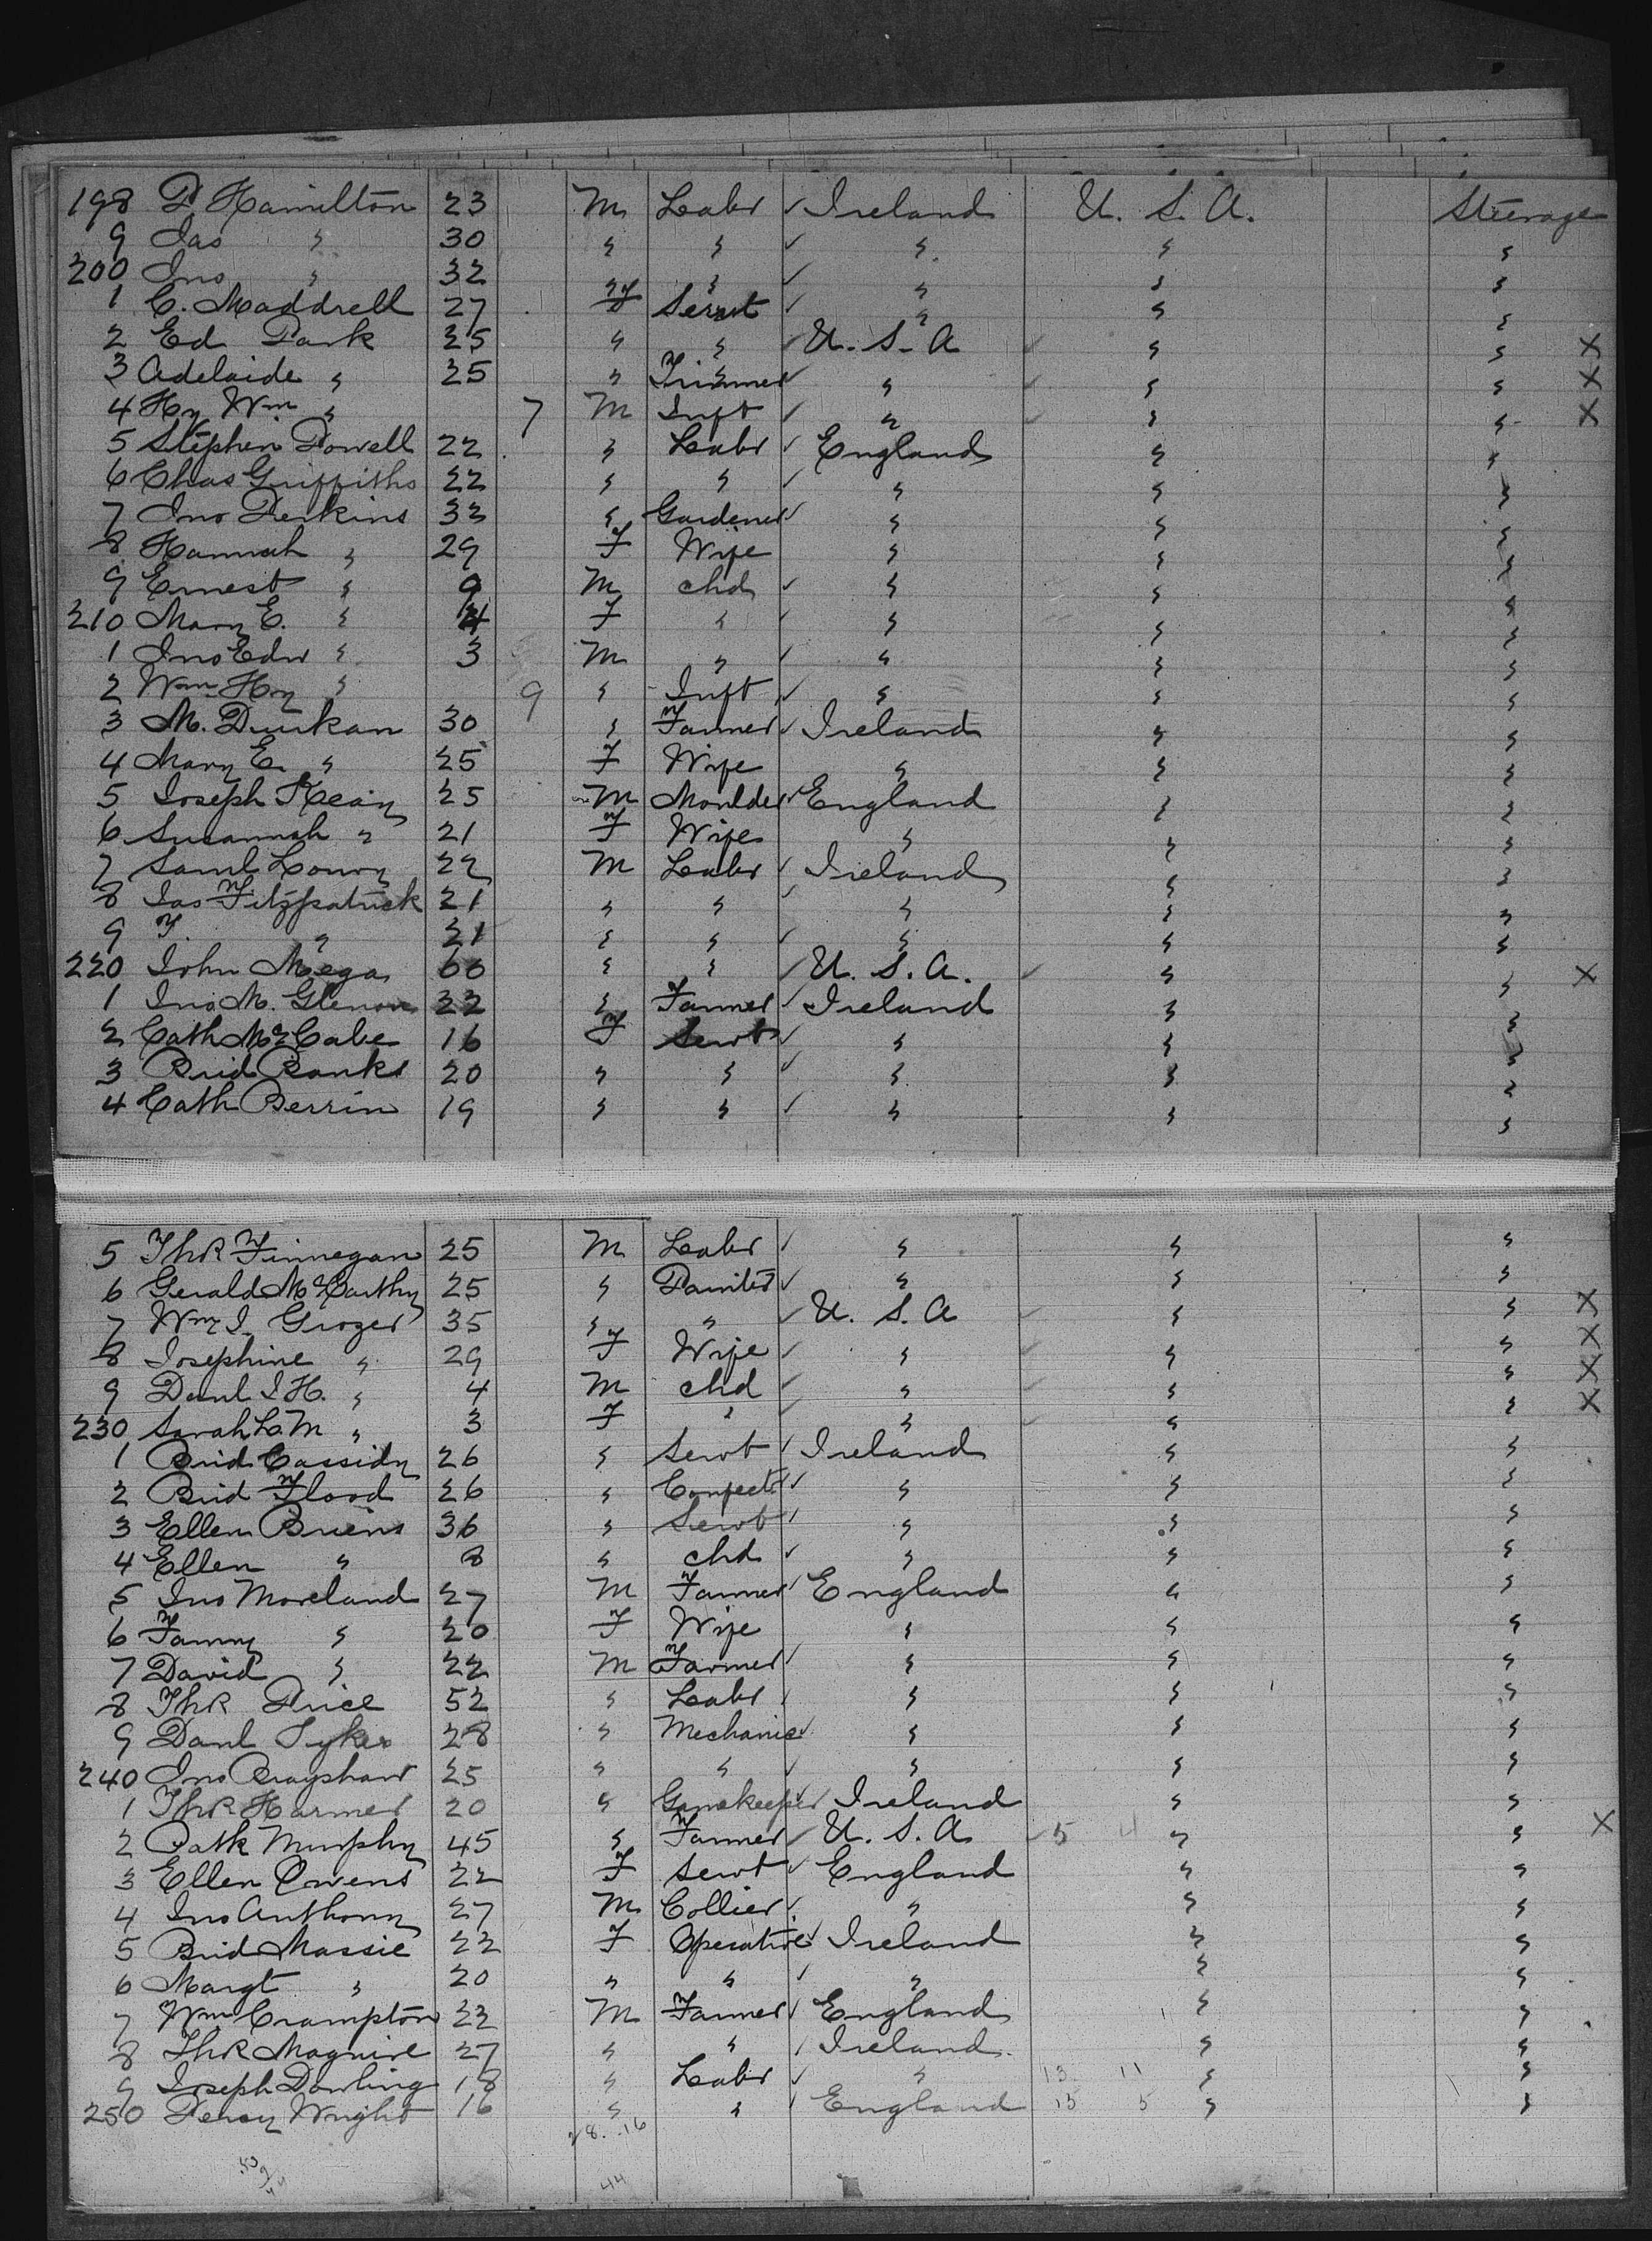 198 P Hamilton 23 M Labr ✓ Ireland U. S. A. Steerage
9 Jas " 30 " " ✓ " " "
200 Jno " 32 " " ✓ " " "
1 C. Maddrell 27 F Servt ✓ " " "
2 Ed Park 25 " " ✓ U. S. A ✓ " " X
3 Adelaide " 25 " Trimmer ✓ " ✓ " " X
4 Hy Wm " 7 M Inft ✓ " ✓ " " X
5 Stephen Powell 22 " Labr ✓ England " "
6 Chas Griffiths 22 " " ✓ " " "
7 Jno Perkins 33 " Gardener ✓ " " "
8 Hannah " 29 F Wife " " "
9 Ernest " 9 M chd ✓ " " "
210 Mary E. " 4 F " ✓ " " "
1 Jno Edw " 3 M " ✓ " " "
2 Wm Hy " 9 " Inft ✓ " " "
3 M. Durkan 30 " Farmer ✓ Ireland " "
4 Mary E. " 25 F Wife " " "
5 Joseph Keay 25 M Moulder ✓ England " "
6 Susannah " 21 F Wife " " "
7 Saml Lowry 22 M Labr ✓ Ireland " "
8 Jas Fitzpatrick 21 " " ✓ " " "
9 F " 21 " " ✓ " " "
220 John Mega 60 " " ✓ U. S. A. ✓ " " X
1 Jno M. Glenon 22 " Farmer ✓ Ireland " "
2 Cath McCabe 16 F Servt ✓ " " "
3 Brid Banks 20 " " ✓ " " "
4 Cath Berrin 19 " " ✓ " " "
5 Thos Finnegan 25 M Labr ✓ " " "
6 Gerald McCarthy 25 " Painter ✓ " " "
7 Wm J. Grozer 35 " " ✓ U. S. A ✓ " " X
8 Josephine " 29 F Wife ✓ " ✓ " " X
9 Danl J H. " 4 M chd ✓ " ✓ " " X
230 Sarah L. M " 3 F " ✓ " ✓ " " X
1 Brid Cassidy 26 " Servt ✓ Ireland " "
2 Brid Flood 26 " Confectr ✓ " " "
3 Ellen Briens 36 " Servt ✓ " " "
4 Ellen " 8 " chd ✓ " " "
5 Jno Moreland 27 M Farmer ✓ England " "
6 Fanny " 20 F Wife " " "
7 David " 22 M Farmer ✓ " " "
8 Thos Price 52 " Labr ✓ " " "
9 Danl Sykes 28 " Mechanic ✓ " " "
240 Jno Brayshaw 25 " " ✓ " " "
1 Thos Harmer 20 " Gamekeeper ✓ Ireland " "
2 Patk Murphy 45 " Farmer ✓ U. S. A ✓ 5 4 " " X
3 Ellen Owens 22 F Servt ✓ England " "
4 Jno Anthony 27 M Collier ✓ " " "
5 Brid Massie 22 F Operative ✓ Ireland " "
6 Margt " 20 " " ✓ " " "
7 Wm Crampton 22 M Farmer ✓ England " "
8 Thos Maguire 27 " " ✓ Ireland " "
9 Joseph Dowling 18 " Labr ✓ " 13 11 " "
250 Percy Wright 16 " " ✓ England 15 5 " "
28. .16
44